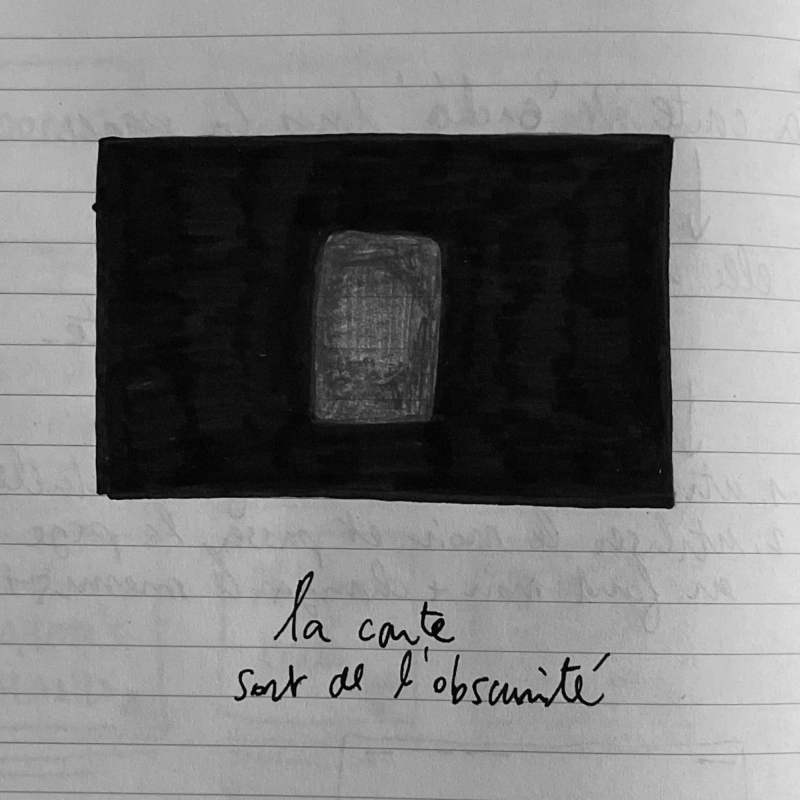 la carte
sort de l'obscurité